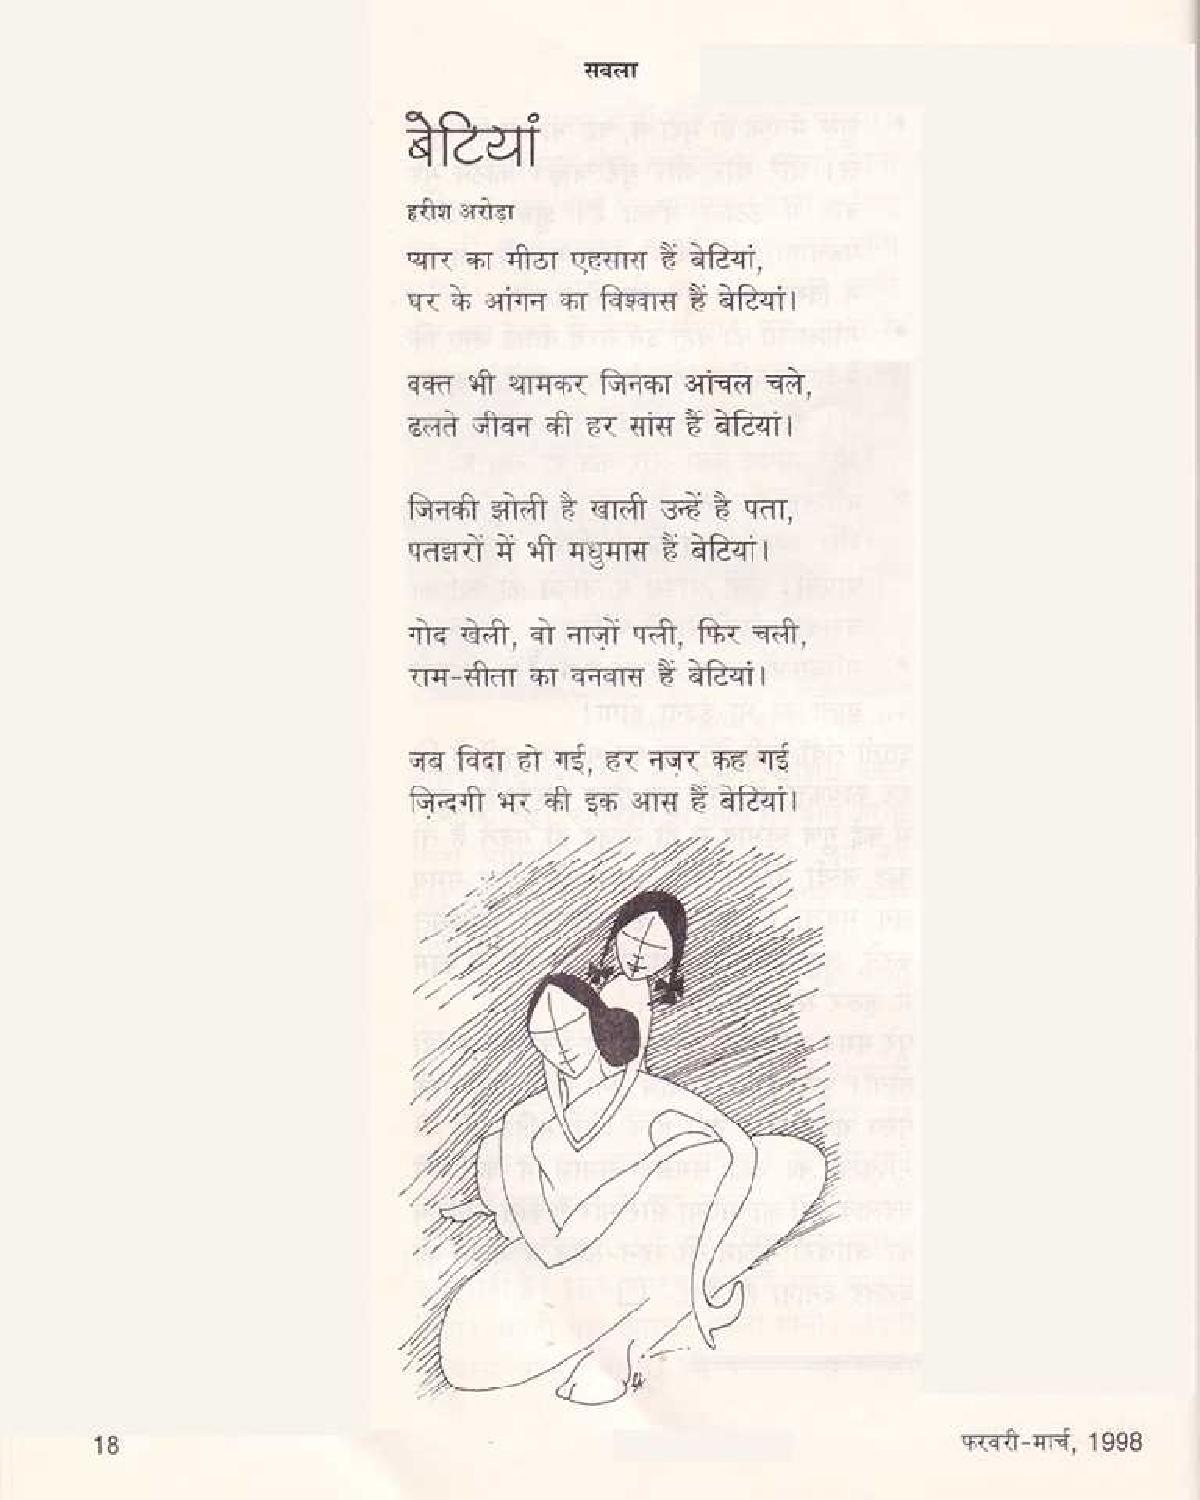 सबला
बेटियां
हरीश अरोड़ा
प्यार का मीठा एहसास हैं बेटियां,
घर के आंगन का विश्वास हैं बेटियां।
वक्त भी थामकर जिनका आंचल चले,
ढलते जीवन की हर सांस हैं बेटियां।
जिनकी झोली है खाली उन्हें है पता,
पतझरों में भी मधुमास हैं बेटियां।
गोद खेली, वो नाज़ों पली, फिर चली,
राम-सीता का वनवास हैं बेटियां।
जब विदा हो गई, हर नज़र कह गई
ज़िन्दगी भर की इक आस हैं बेटियां।
18
फरवरी-मार्च, 1998